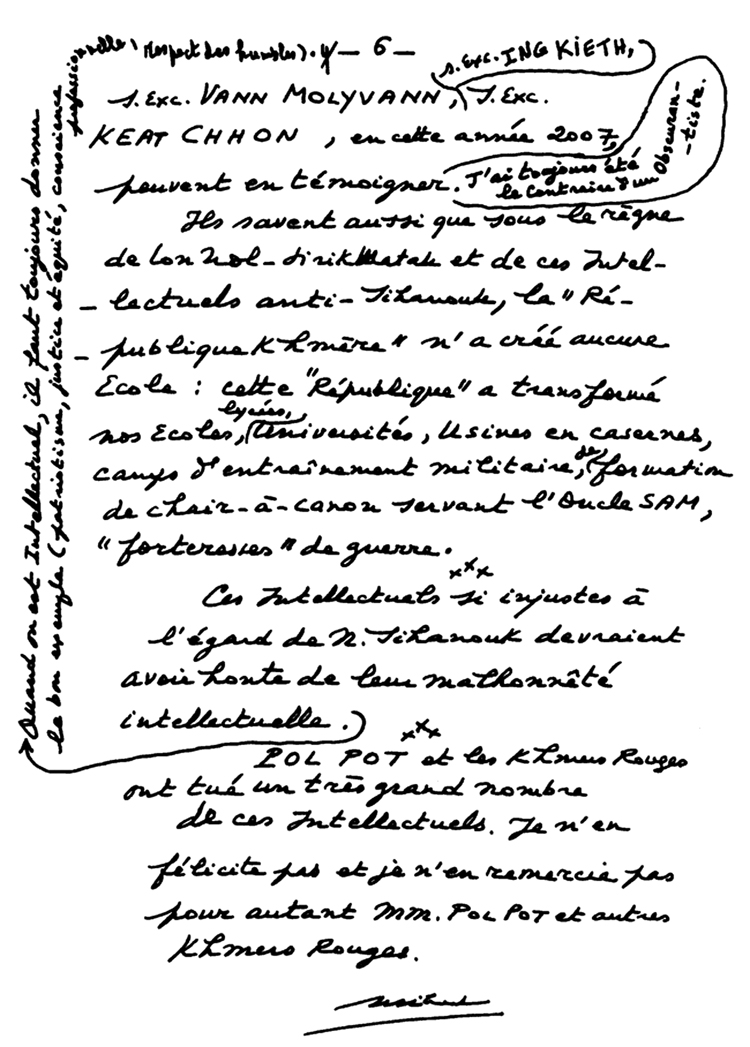 — 6 —
S. Exc. ING KIETH,
S. Exc. VANN MOLYVANN, S. Exc.
KEAT CHHON, en cette année 2007,
peuvent en témoigner. J'ai toujours été
le contraire d'un Obscuran-
-tiste.
Ils savent aussi que sous le règne
de Lon Nol - Sirik Matak et de ces Intel-
- lectuels anti-Sihanouk, la "Ré-
- publique Khmère" n'a créé aucune
Ecole : cette "République" a transformé
nos Ecoles, lycées, Universités, Usines en casernes,
camps d'entraînement militaire, de formation
de chair-à-canon servant l'Oncle SAM,
"forteresses" de guerre.
xxx
Ces Intellectuels si injustes à
l'égard de N. Sihanouk devraient
avoir honte de leur malhonnêté
intellectuelle.
Quand on est Intellectuel, il faut toujours donner
le bon exemple (patriotisme, justice et équité, conscience
professionnelle, respect des humbles).
xxx
POL POT et les Khmers Rouges
ont tué un très grand nombre
de ces Intellectuels. Je n'en
félicite pas et je n'en remercie pas
pour autant MM. POL POT et autres
Khmers Rouges.